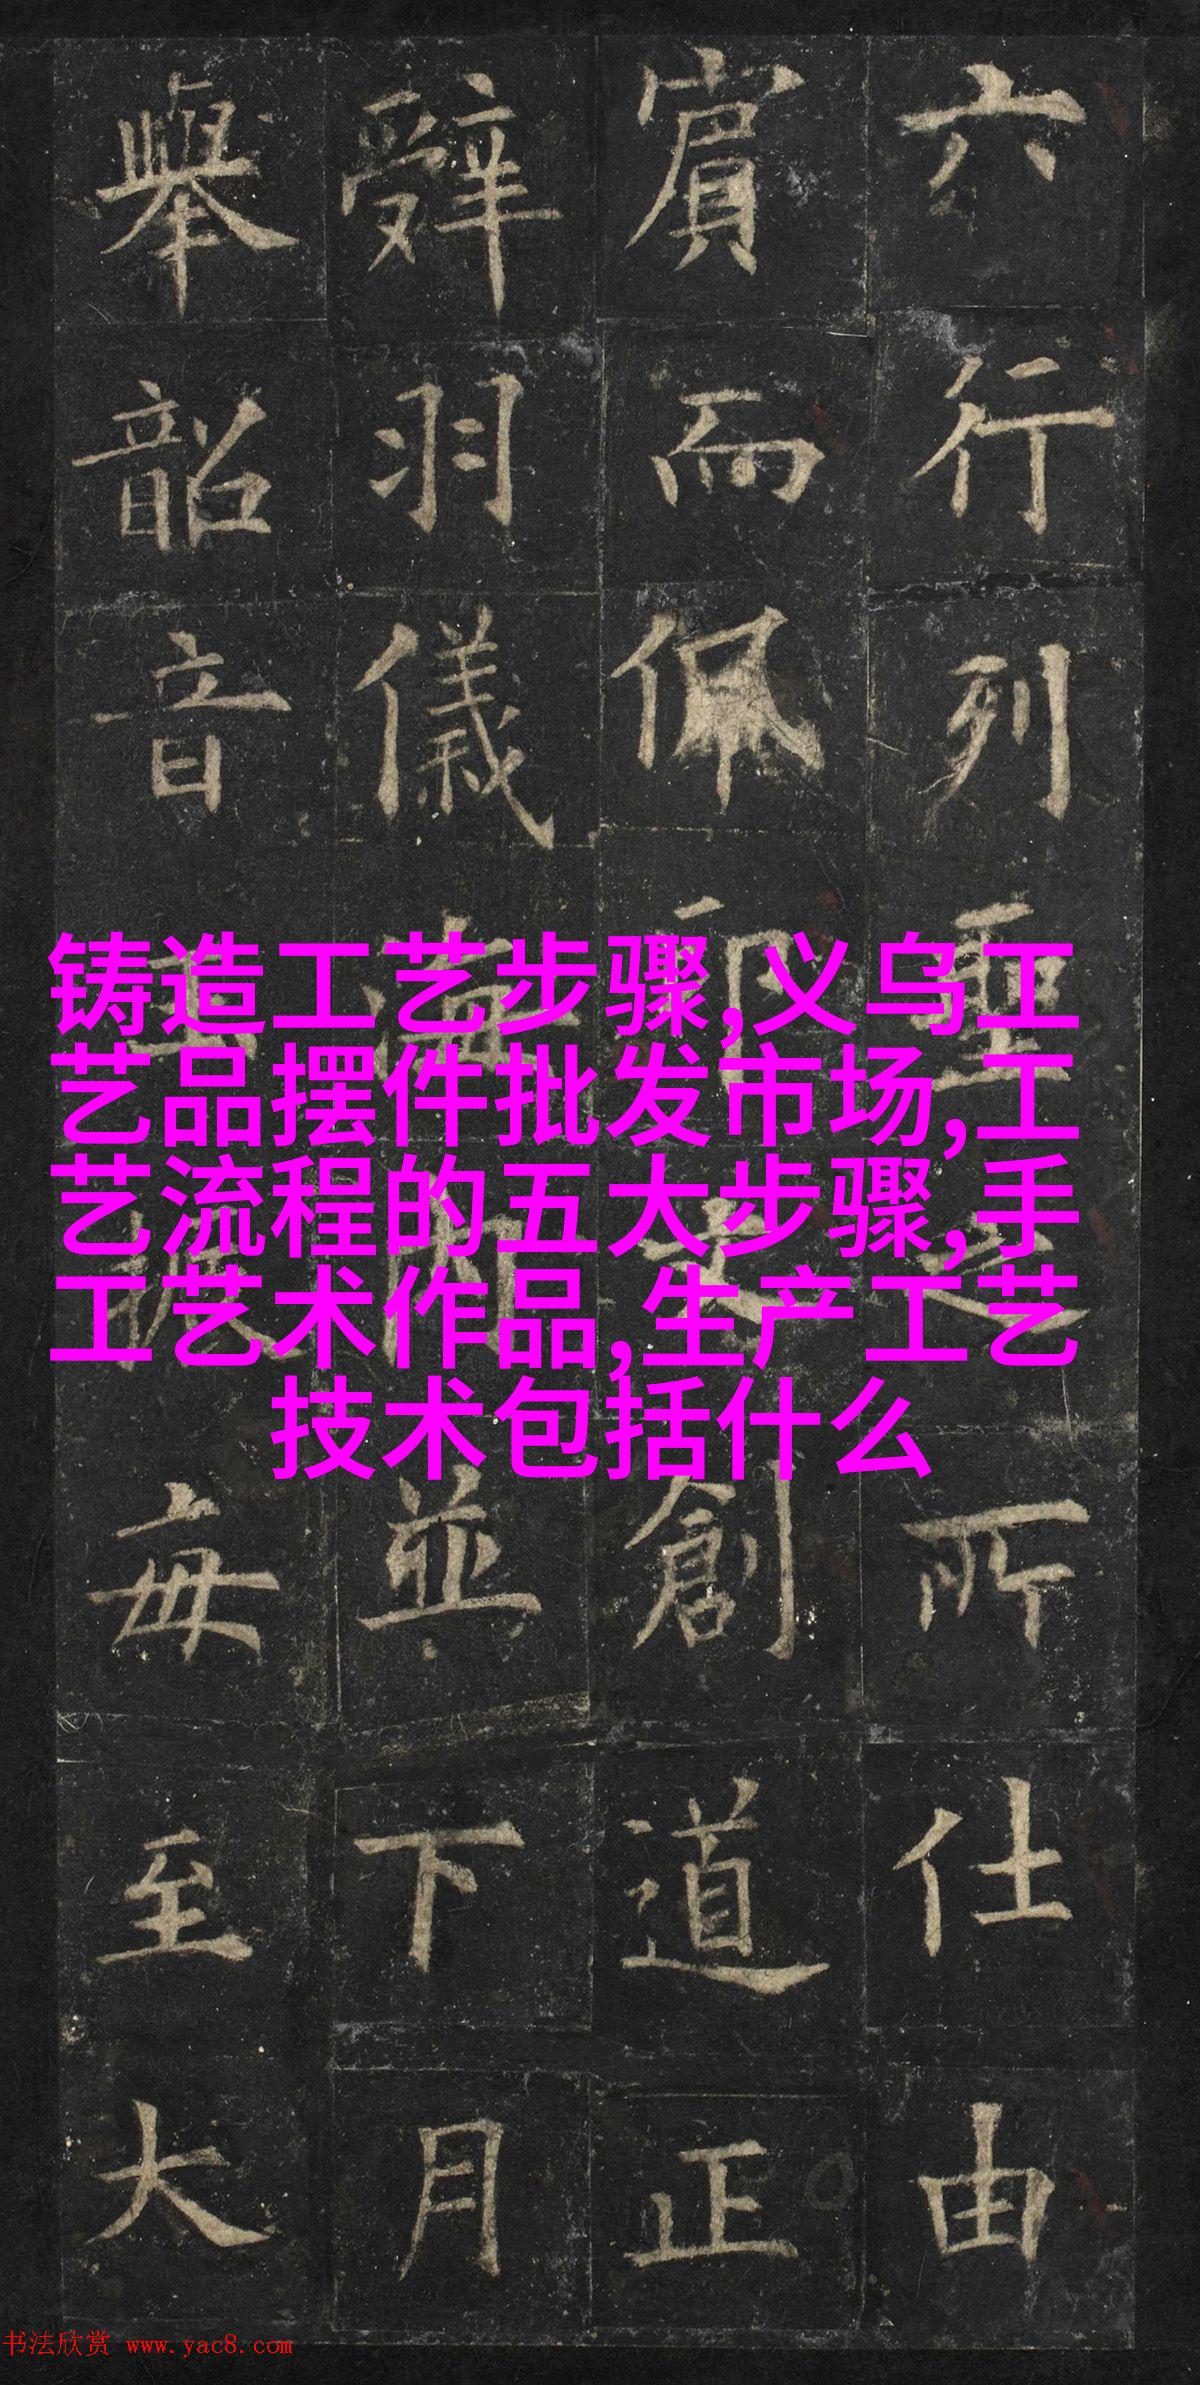 六行列聖之所仕由
賔而佩創道正
辤羽儀海内並下月
舉韶音毎至大
铸造工艺步骤,义乌工
艺品摆件批发市场,工
艺流程的五大步骤,手
工艺术作品,生产工艺
技术包括什么
书法欣赏 www.yac8.com